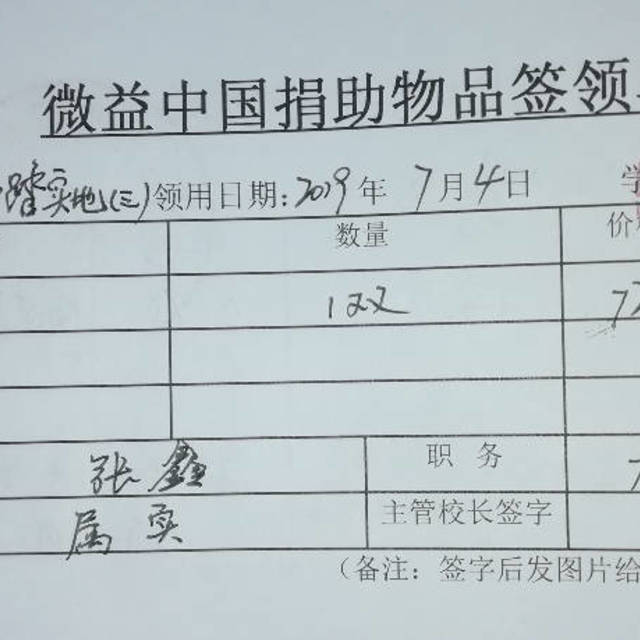 微益中国捐助物品签领
踏实地(三)领用日期:2019年 7月4日 学
数量 价
1双 7
张鑫 职 务
属实 主管校长签字
(备注: 签字后发图片给